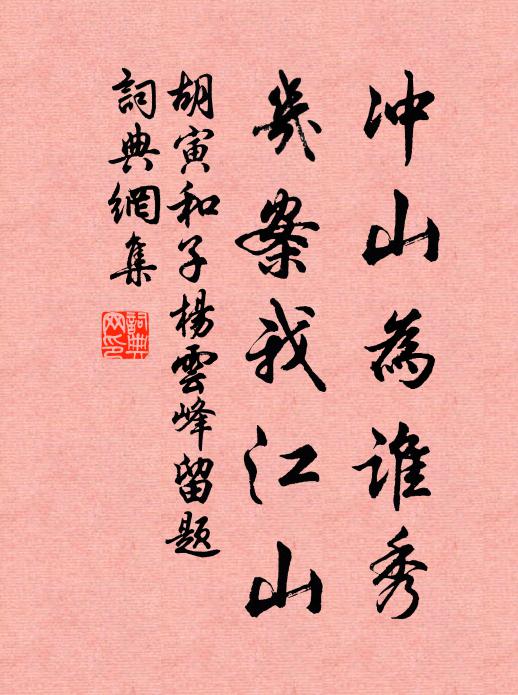 冲山為誰秀
幾案我江山
胡寅和子楊雲峰留題
詞典網集
詞典網印